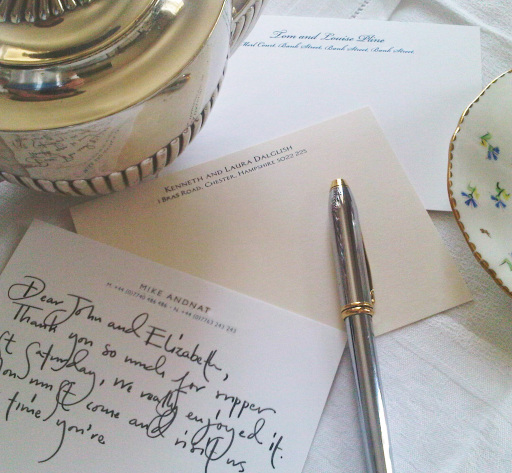 Tom and Louise Pline
Court, Bank Street, Bank Street, Bank Street
KENNETH AND LAURA DALGLISH
1 BRAB ROAD, CHESTER, HAMPSHIRE SO22 2QS
MIKE ANDNAT
Dear John and Elizabeth,
Thank you so much for supper
Saturday, we really enjoyed it.
must come and visit us
time you're